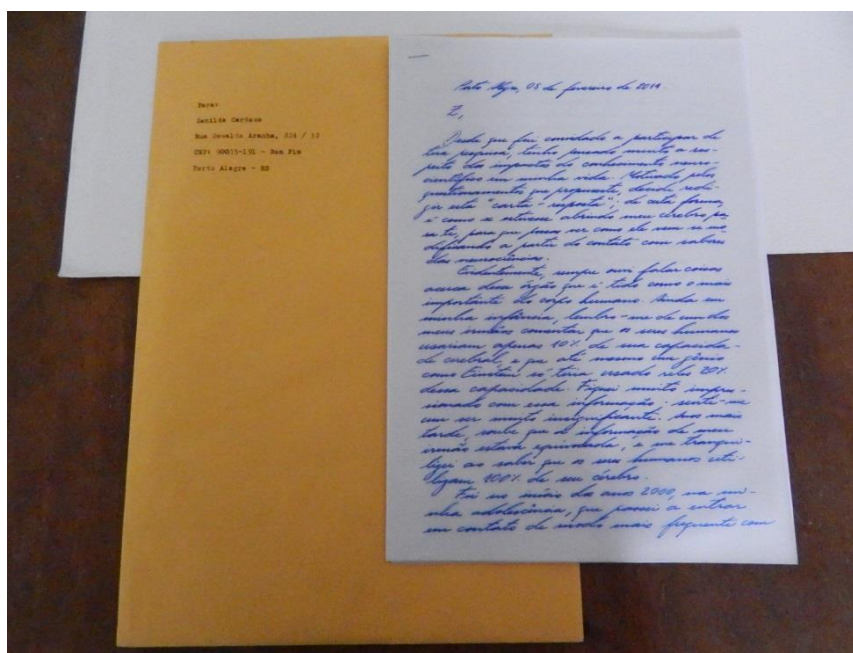 Para:
Zenilda Cardozo
Rua Osvaldo Aranha, 824 / 12
CEP: 90035-191 - Bom Fim
Porto Alegre - RS
Porto Alegre, 05 de fevereiro de 2014
Z,
Desde que fui convidado a participar de
tua pesquisa, tenho pensado muito a res-
peito dos impactos do conhecimento neuro-
científico em minha vida. Motivado pelos
questionamentos que propuseste, decidi redi-
gir esta "carta-resposta"; de certa forma,
é como se estivesse abrindo meu cérebro pa
ra ti, para que possas ver como ele vem se mo
dificando a partir do contato com saberes
das neurociências.
Evidentemente, sempre ouvi falar coisas
acerca desse órgão que é tido como o mais
importante do corpo humano. Ainda em
minha infância, lembro-me de um dos
meus irmãos comentar que os seres humanos
usariam apenas 10% de sua capacida-
de cerebral, e que até mesmo um gênio
como Einstein só teria usado 20%
dessa capacidade. Fiquei muito impres-
sionado com essa informação: senti-me
um ser muito insignificante. Anos mais
tarde, soube que a informação de meu
irmão estava equivocada, e me tranqui-
lizei ao saber que os seres humanos uti-
lizam 100% de seu cérebro.
Foi no início dos anos 2000, na mi-
nha adolescência, que passei a entrar
em contato de modo mais frequente com